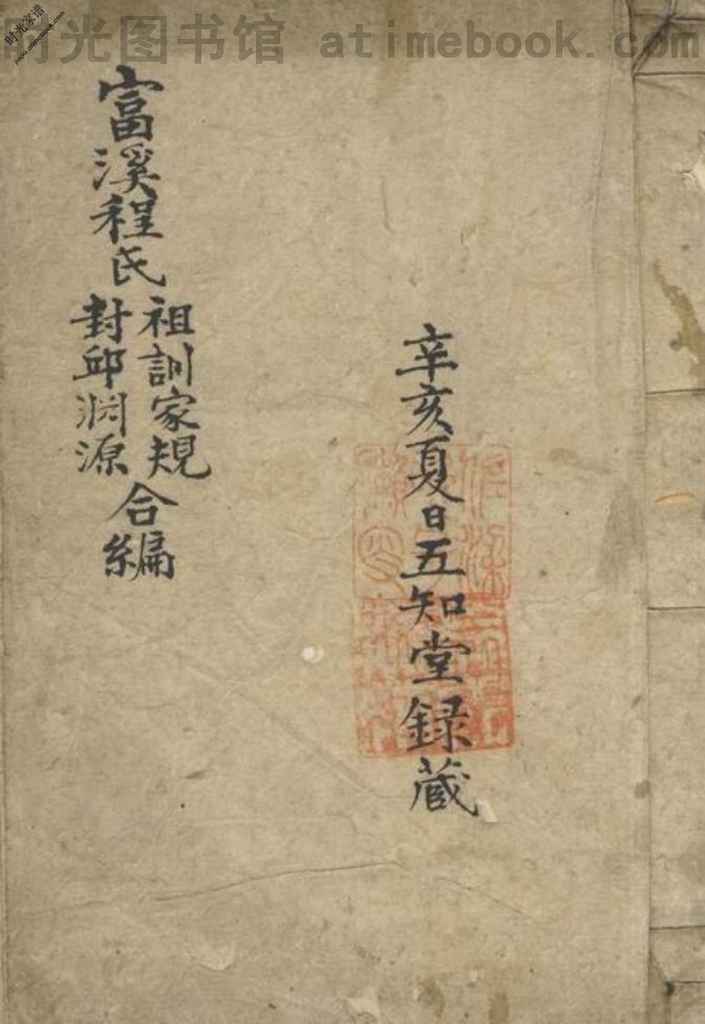 时光图书馆 atimebook.com
时光家谱
辛亥夏日五知堂録蔵
富溪程氏
祖訓家規
封邱渊源
合編